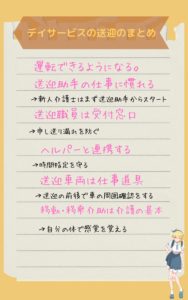 デイサービスの送迎のまとめ
運転できるようになる。
送迎助手の仕事に慣れる
→新人介護士はまず送迎助手からスタート
送迎職員は受付窓口
→申し送り漏れを防ぐ
ヘルパーと連携する
→時間指定を守る
送迎車両は仕事道具
→送迎の前後で車の周囲確認をする
移乗・移乗介助は介護の基本
→自分の体で感覚を覚える